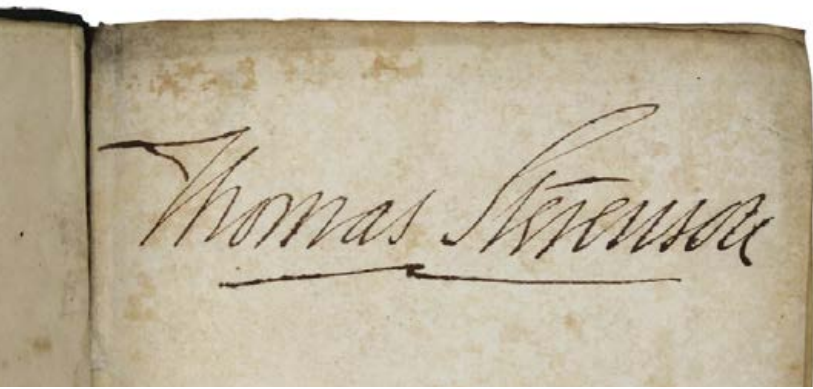 Thomas Stevenson